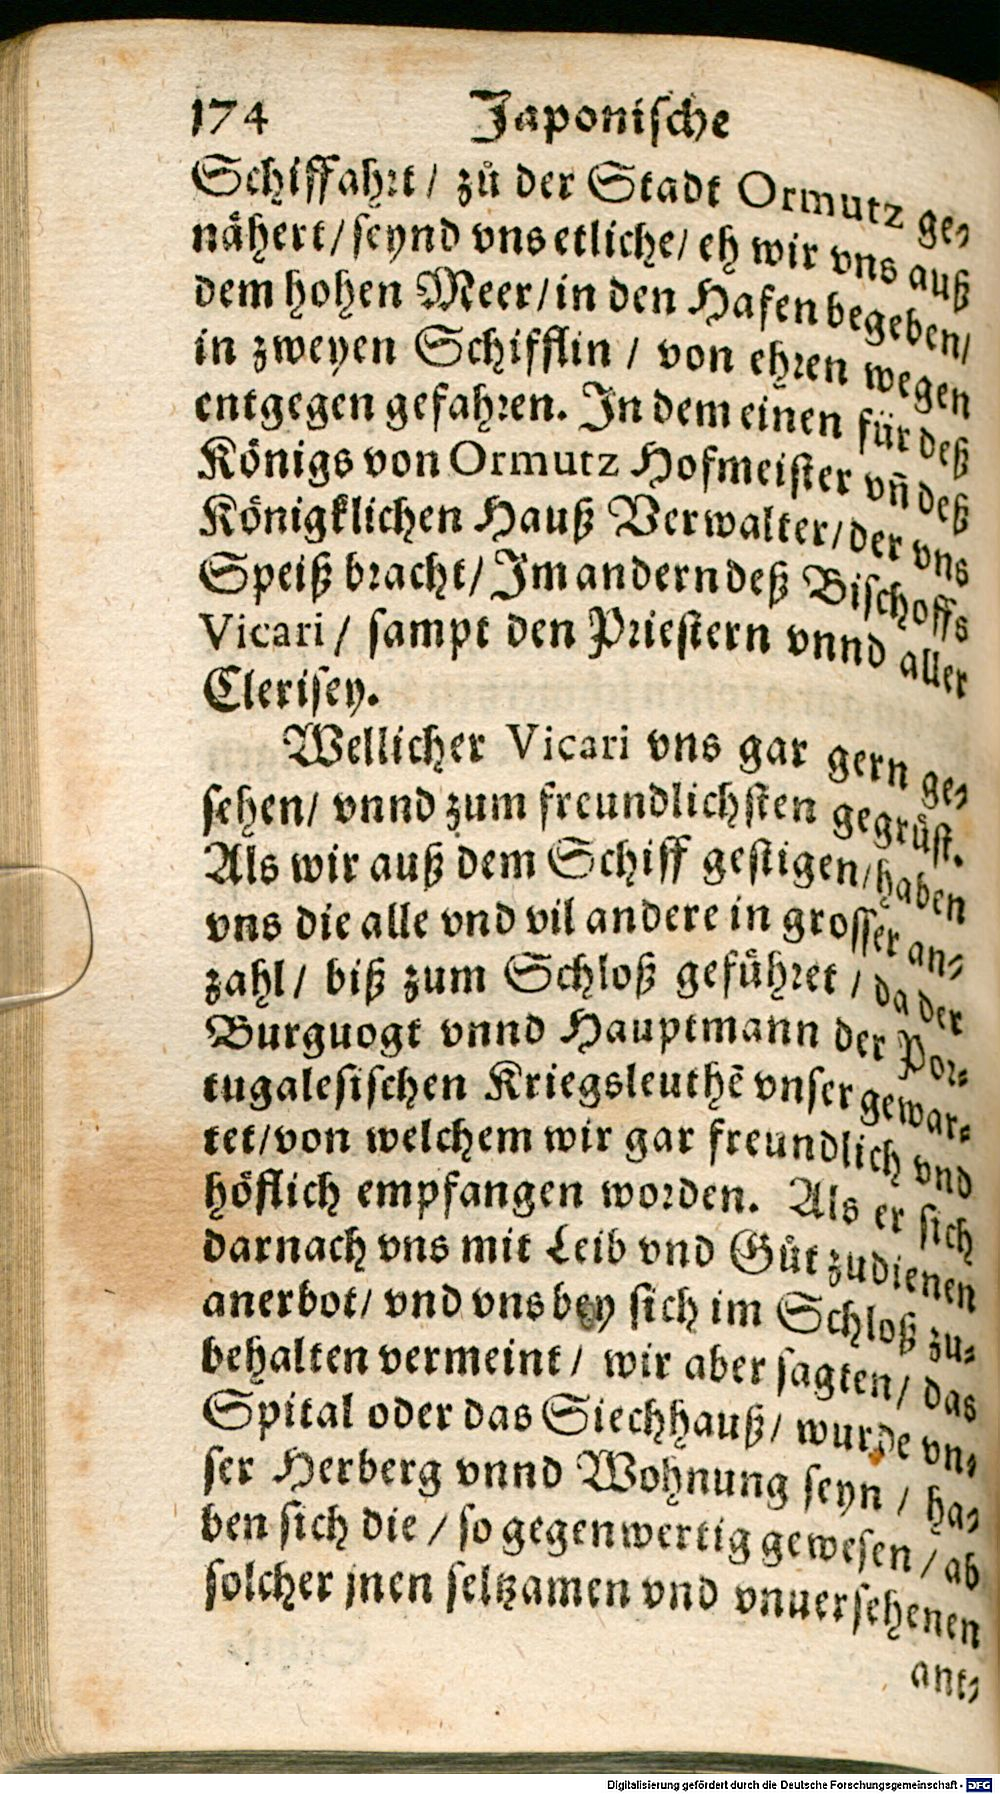 174 Japonische
Schiffahrt/ zů der Stadt Ormutz ge-
nähert/ seynd vns etliche/ eh wir vns auß
dem hohen Meer/ in den Hafen begeben/
in zweyen Schifflin / von ehren wegen
entgegen gefahren. In dem einen für deß
Königs von Ormutz Hofmeister vñ deß
Königklichen Hauß Verwalter/ der vns
Speiß bracht/ Im andern deß Bischoffs
Vicari / sampt den Priestern vnnd aller
Clerisey.
Wellicher Vicari vns gar gern ge-
sehen/ vnnd zum freundlichsten gegrůst.
Als wir auß dem Schiff gestigen/ haben
vns die alle vnd vil andere in grosser an-
zahl/ biß zum Schloß geführet / da der
Burguogt vnnd Hauptmann der Por-
tugalesischen Kriegsleuthẽ vnser gewar-
tet/ von welchem wir gar freundlich vnd
höflich empfangen worden. Als er sich
darnach vns mit Leib vnd Gůt zudienen
anerbot/ vnd vns bey sich im Schloß zu-
behalten vermeint / wir aber sagten/ das
Spital oder das Siechhauß/ wurde vn-
ser Herberg vnnd Wohnung seyn / ha-
ben sich die / so gegenwertig gewesen / ab
solcher jnen seltzamen vnd vnuersehenen
ant-
Digitalisierung gefördert durch die Deutsche Forschungsgemeinschaft - DFG